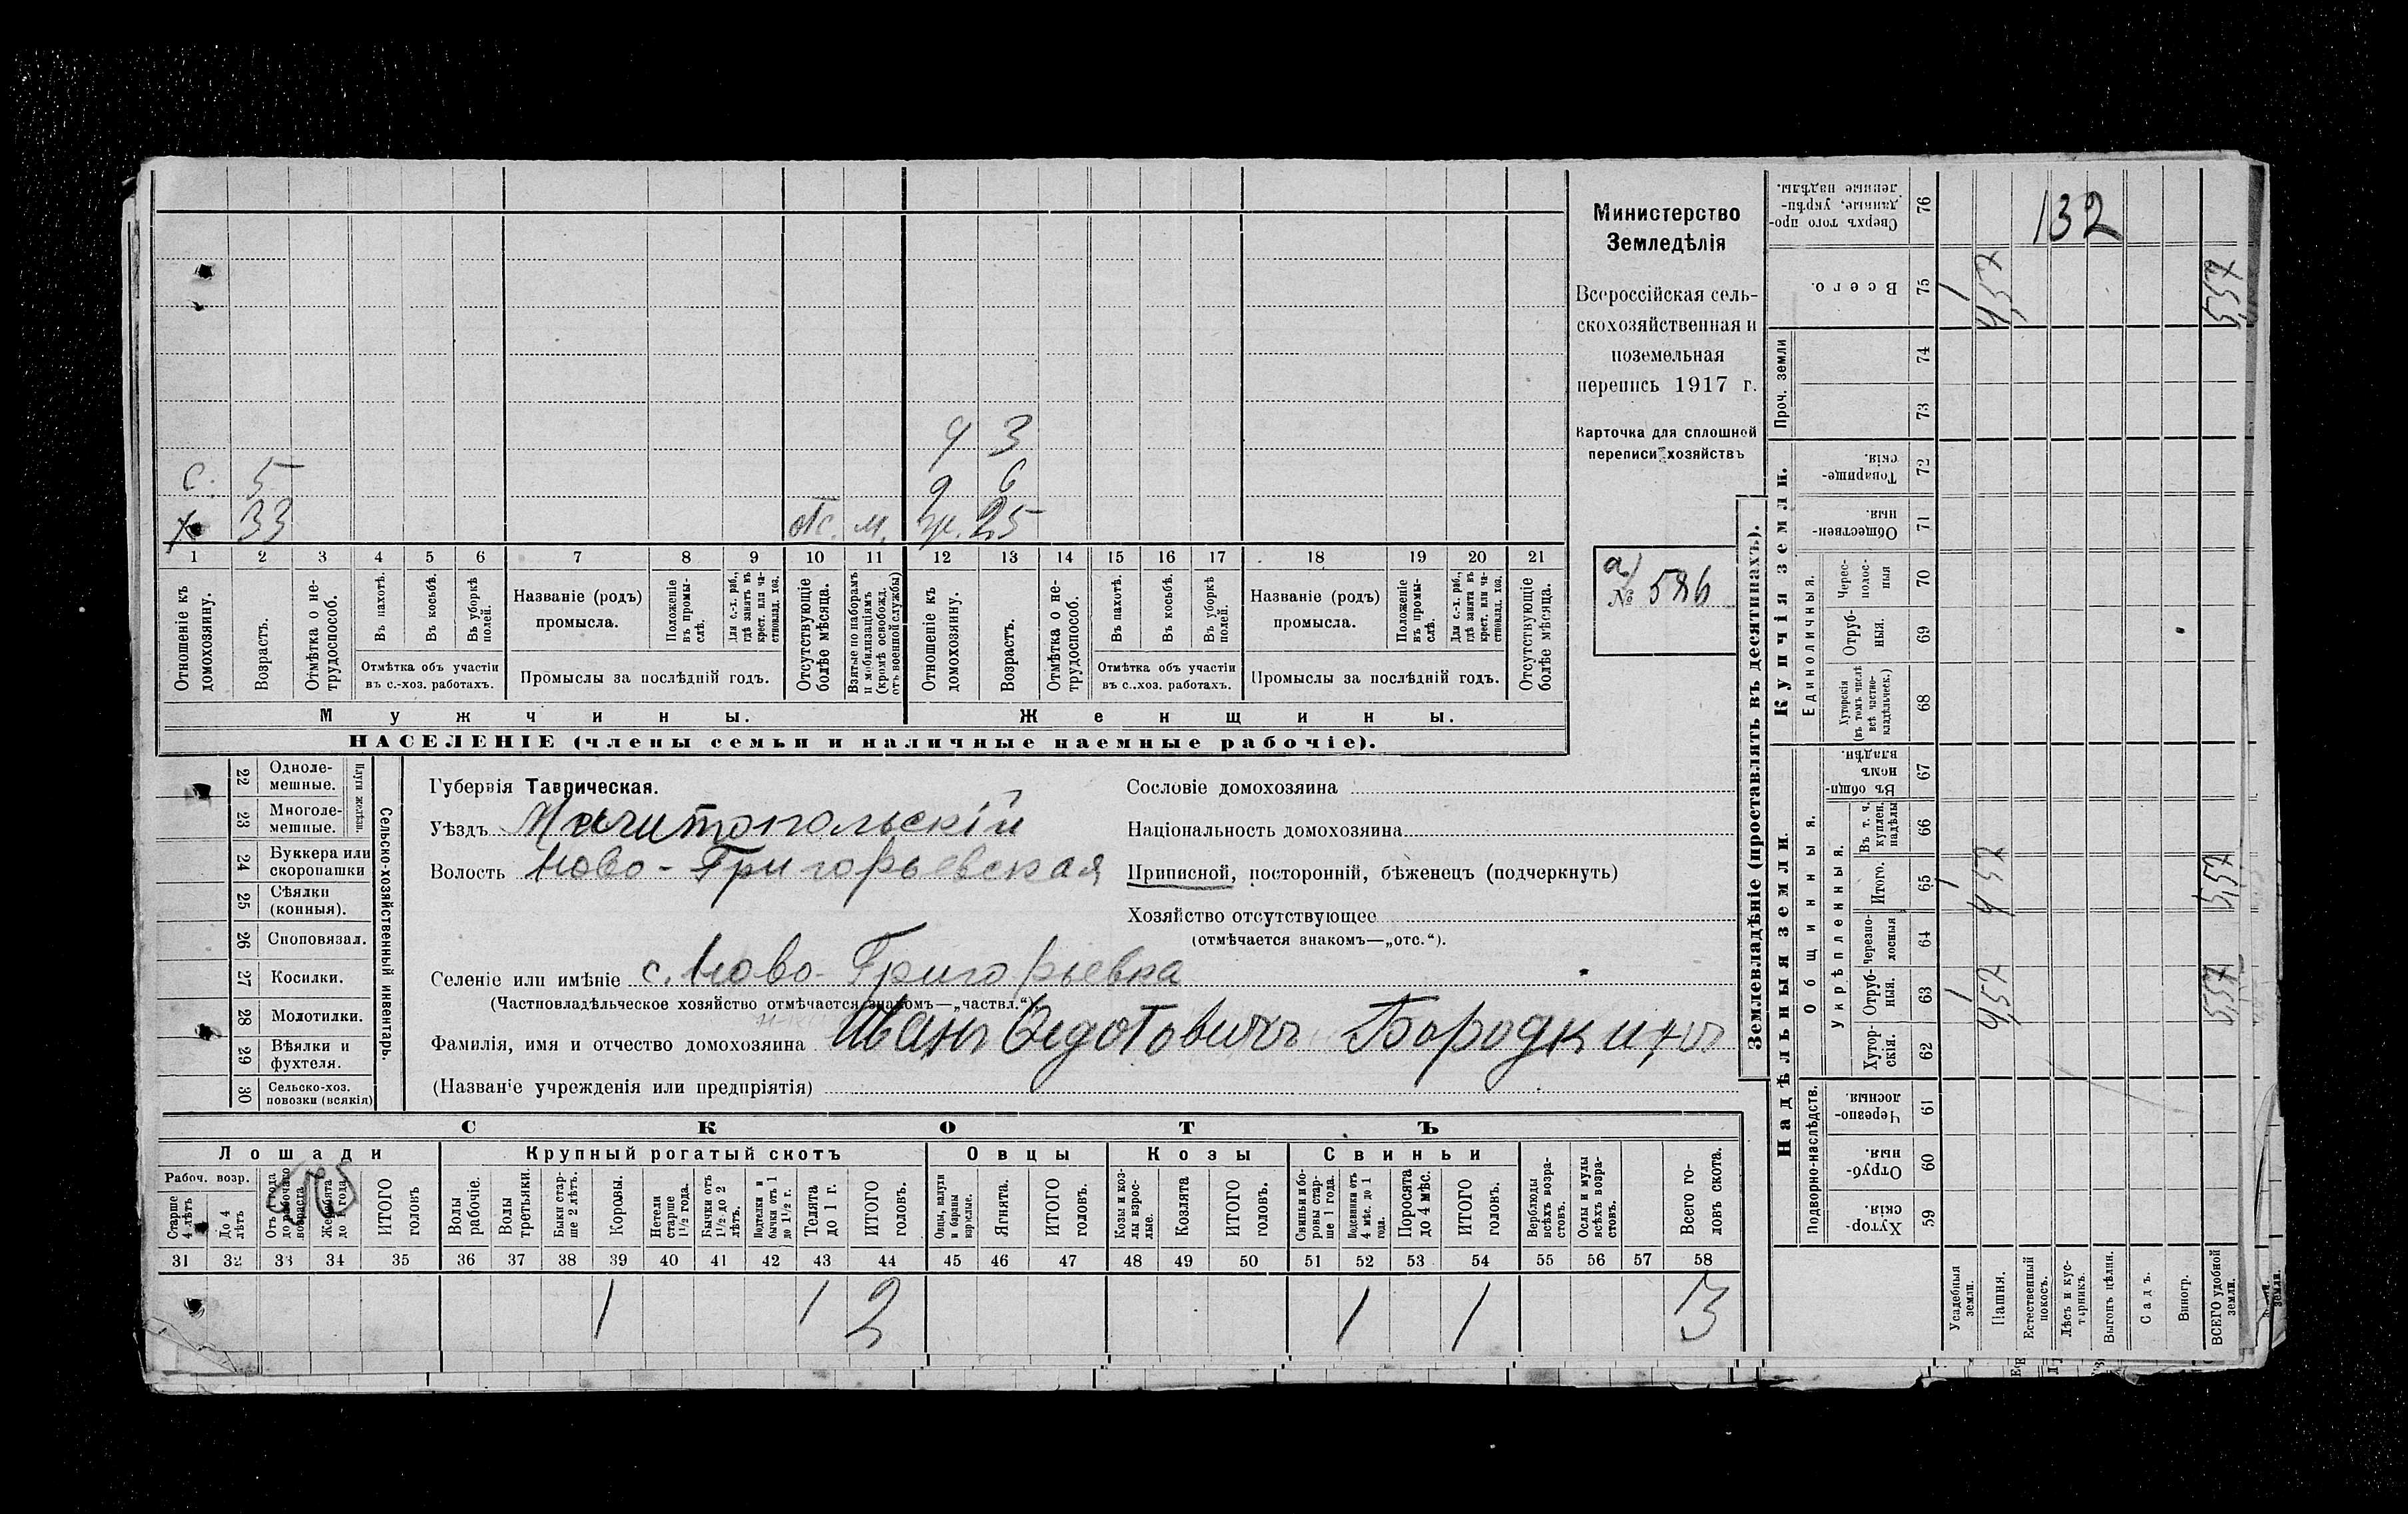 132
Министерство
Земледѣлія
Всероссійская сель-
скохозяйственная и
поземельная
перепись 1917 г.
Карточка для сплошной
переписи хозяйствъ
а)
№ 586
ч 3
с. 5 д 6
х 33 отс. м. ж. 25
1 2 3 4 5 6 7 8 9 10 11 12 13 14 15 16 17 18 19 20 21
Отношеніе къ домохозяину.
Возрастъ.
Отмѣтка о не-трудоспособ.
Въ пахотѣ.
Въ косьбѣ.
Въ уборкѣ полей.
Отмѣтка объ участіи
въ с.-хоз. работахъ.
Названіе (родъ)
промысла.
Положеніе въ промы-слѣ.
Для с.-х. раб., гдѣ занятъ въ крест. или ча-стновлад. хоз.
Промыслы за послѣдній годъ.
Отсутствующіе болѣе мѣсяца.
Взятые по наборамъ и мобилизаціямъ (кромѣ освобожд. отъ военной службы)
Отношеніе къ домохозяину.
Возрастъ.
Отмѣтка о не-трудоспособ.
Въ пахотѣ.
Въ косьбѣ.
Въ уборкѣ полей.
Отмѣтка объ участіи
въ с..хоз. работахъ.
Названіе (родъ)
промысла.
Положеніе въ промы-слѣ.
Для с.-х. раб., гдѣ занята въ крест. или ча-стновлад. хоз.
Промыслы за послѣдній годъ.
Отсутствующіе болѣе мѣсяца.
Мужчины. Женщины.
НАСЕЛЕНІЕ (члены семьи и наличные наемные рабочіе).
22 Одноле-мешные.
23 Многоле-мешные.
Плуги желѣзн.
24 Буккера или скоропашки
25 Сѣялки (конныя).
26 Сноповязал.
27 Косилки.
28 Молотилки.
29 Вѣялки и фухтеля.
30 Сельско-хоз. повозки (всякія)
Сельско-хозяйственный инвентарь.
Губернія Таврическая.
Уѣздъ Мелитопольскій
Волость Ново-Григорьевская
Селеніе или имѣніе с. Ново-Григорьевка
(Частновладѣльческое хозяйство отмѣчается знакомъ—„частвл.“)
Фамилія, имя и отчество домохозяина Иванъ Федотовичъ Бородкинъ
(Названіе учрежденія или предпріятія)
Сословіе домохозяина
Національность домохозяина
Приписной, посторонній, бѣженецъ (подчеркнуть)
Хозяйство отсутствующее
(отмѣчается знакомъ—„отс.“).
СКОТЪ
Лошади Крупный рогатый скотъ Овцы Козы Свиньи
Рабоч. возр.
Старше 4 лѣтъ
До 4 лѣтъ
Отъ 1 года до рабочаго возраста
Жеребята до 1 года
ИТОГО головъ
Волы рабочіе.
Волы третьяки.
Быки стар-ше 2 лѣтъ.
Коровы.
Нетели старше 1½ года.
Бычки отъ 1½ до 2 лѣтъ.
Подтелки и бычки отъ 1 до 1½ г.
Телята до 1 г.
ИТОГО головъ.
Овцы, валухи и бараны взрослые.
Ягнята.
ИТОГО головъ.
Козы и коз-лы взрос-лые.
Козлята
ИТОГО головъ.
Свиньи и бо-ровы стар-ше 1 года.
Подсвинки отъ 4 мѣс. до 1 года.
Поросята до 4 мѣс.
ИТОГО головъ.
Верблюды всѣхъ возра-стовъ.
Ослы и мулы всѣхъ возра-стовъ.
Всего го-ловъ скота.
31 32 33 34 35 36 37 38 39 40 41 42 43 44 45 46 47 48 49 50 51 52 53 54 55 56 57 58
1 1 2 1 1 3
Землевладѣніе (проставлять въ десятинахъ).
Надѣльныя земли. Купчія земли. Проч. земли
Подворно-наслѣдств.
Общинныя.
Укрѣпленныя.
Единоличныя.
Хутор-скія. 59
Отруб-ныя. 60
Черезпо-лосныя. 61
Хутор-скія. 62
Отруб-ныя. 63
Черезпо-лосныя 64
Итого. 65
Въ т. ч. куплен. надѣлы 66
Въ общи-номъ владѣн. 67
Хуторскія (въ томъ числѣ всѣ частно-владѣльческ.) 68
Отруб-ныя. 69
Черес-полос-ныя 70
Обществен-ныя. 71
Товарище-скія. 72
73
74
Всего. 75
Сверхъ того про-данные, укрѣп-ленные надѣлы. 76
Усадебныя земли.
Пашня.
Естественный покосъ.
Лѣсъ и кус-тарникъ.
Выгонъ цѣлин.
Садъ.
Виногр.
ВСЕГО удобной земли.
1 4,57 5,57
1 4,57 5,57
1 4,57 5,57